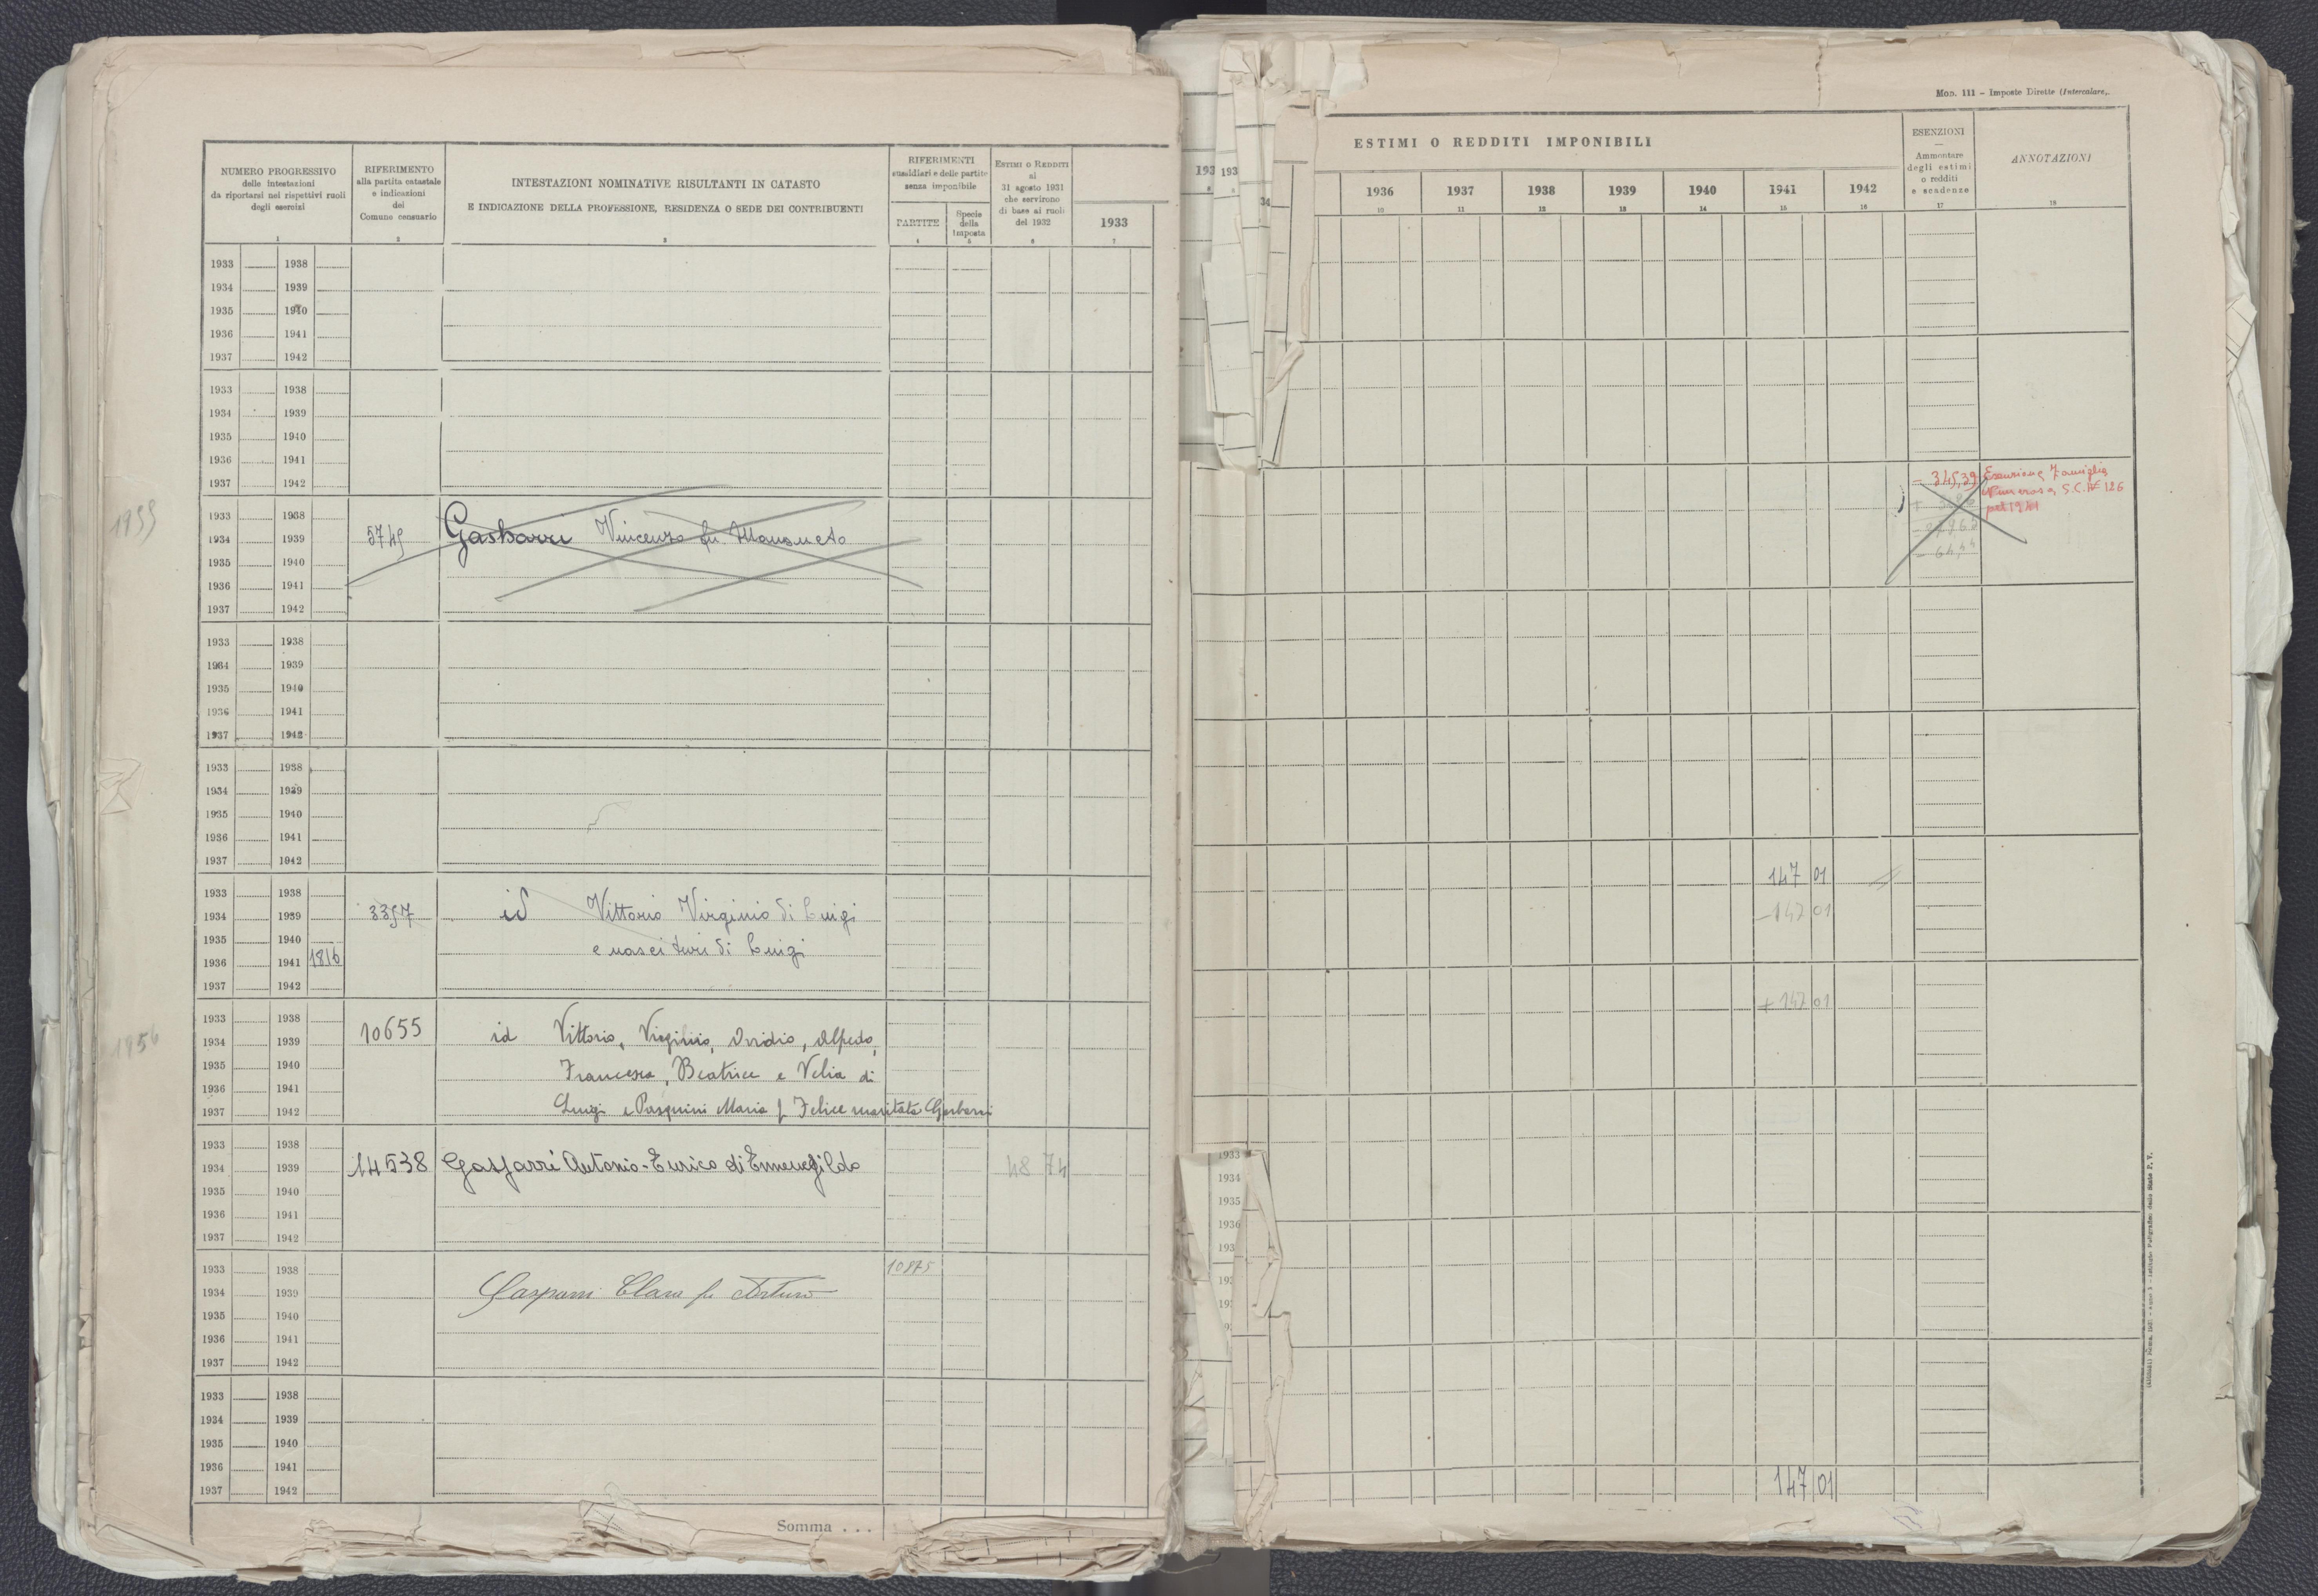 Mod. 111 – Imposte Dirette (Intercalare,.
NUMERO PROGRESSIVO
delle intestazioni
da riportarsi nei rispettivi ruoli
degli esercizi
1
RIFERIMENTO
alla partita catastale
e indicazioni
del
Comune censuario
2
INTESTAZIONI NOMINATIVE RISULTANTI IN CATASTO
E INDICAZIONE DELLA PROFESSIONE, RESIDENZA O SEDE DEI CONTRIBUENTI
3
RIFERIMENTI
sussidiari e delle partite
senza imponibile
PARTITE
4
Specie
della
Imposta
5
ESTIMI O REDDITI
al
31 agosto 1931
che servirono
di base ai ruoli
del 1932
6
1933
7
1933 1938
1934 1939
1935 1940
1936 1941
1937 1942
1933 1938
1934 1939
1935 1940
1936 1941
1937 1942
1933 1938
1934 1939 5749 Gasbarri Vincenzo fu Mansueto
1935 1940
1936 1941
1937 1942
1933 1938
1934 1939
1935 1940
1936 1941
1937 1942
1933 1938
1934 1939
1935 1940
1936 1941
1937 1942
1933 1938
1934 1939 3397 id Vittorio Virginio di Luigi
1935 1940 e nascituri di Luigi
1936 1941 1816
1937 1942
1933 1938
1934 1939 10655 id Vittorio, Virginio, Ovidio, Alfredo,
1935 1940 Francesca, Beatrice e Velia di
1936 1941
1937 1942 Luigi e Pasquini Maria f Felice maritata Gasbarri
1933 1938
1934 1939 14538 Gasparri Antonio-Enrico di Ermenegildo 48 74
1935 1940
1936 1941
1937 1942
1933 1938 10875
1934 1939 Gasparri Clara fu Arturo
1935 1940
1936 1941
1937 1942
1933 1938
1934 1939
1935 1940
1936 1941
1937 1942
Somma . . .
ESTIMI O REDDITI IMPONIBILI
1936 1937 1938 1939 1940 1941 1942
10 11 12 13 14 15 16
ESENZIONI
Ammontare
degli estimi
o redditi
e scadenze
17
ANNOTAZIONI
18
– 345,39 Esenzione Famiglia
Numerosa, S.C. N° 126
pel 1941
– 64,44
147 01
–147 01
+ 147 01
1933
1934
1935
1936
147 01